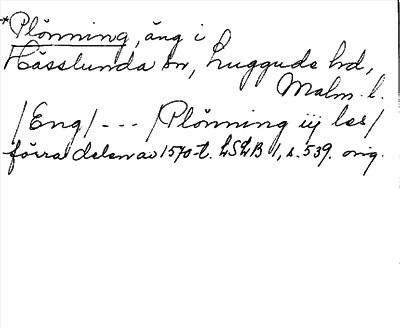 *Plönning, äng i
Hässlunda sn, Luggude hd,
Malm. l.
/Eng/ --- /Plönning iij les/
förra delen av 1570-t. LSLB 1, s. 539. orig.